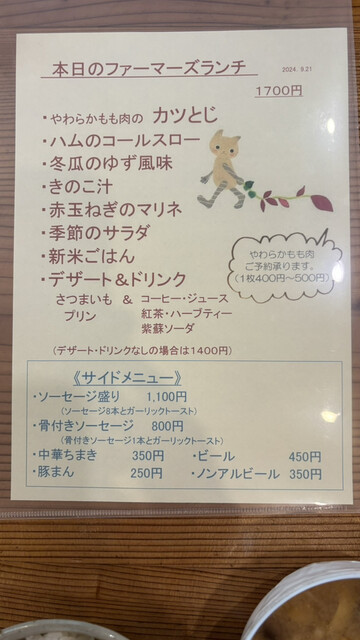 本日のファーマーズランチ 2024. 9.21
1700円
・やわらかもも肉の カツとじ
・ハムのコールスロー
・冬瓜のゆず風味
・きのこ汁
・赤玉ねぎのマリネ
・季節のサラダ
・新米ごはん
・デザート＆ドリンク
さつまいも ＆ コーヒー・ジュース
プリン 紅茶・ハーブティー
紫蘇ソーダ
やわらかもも肉
ご予約承ります。
（1枚400円～500円）
（デザート・ドリンクなしの場合は1400円）
《サイドメニュー》
・ソーセージ盛り 1,100円
（ソーセージ8本とガーリックトースト）
・骨付きソーセージ 800円
（骨付きソーセージ1本とガーリックトースト）
・中華ちまき 350円 ・ビール 450円
・豚まん 250円 ・ノンアルビール 350円